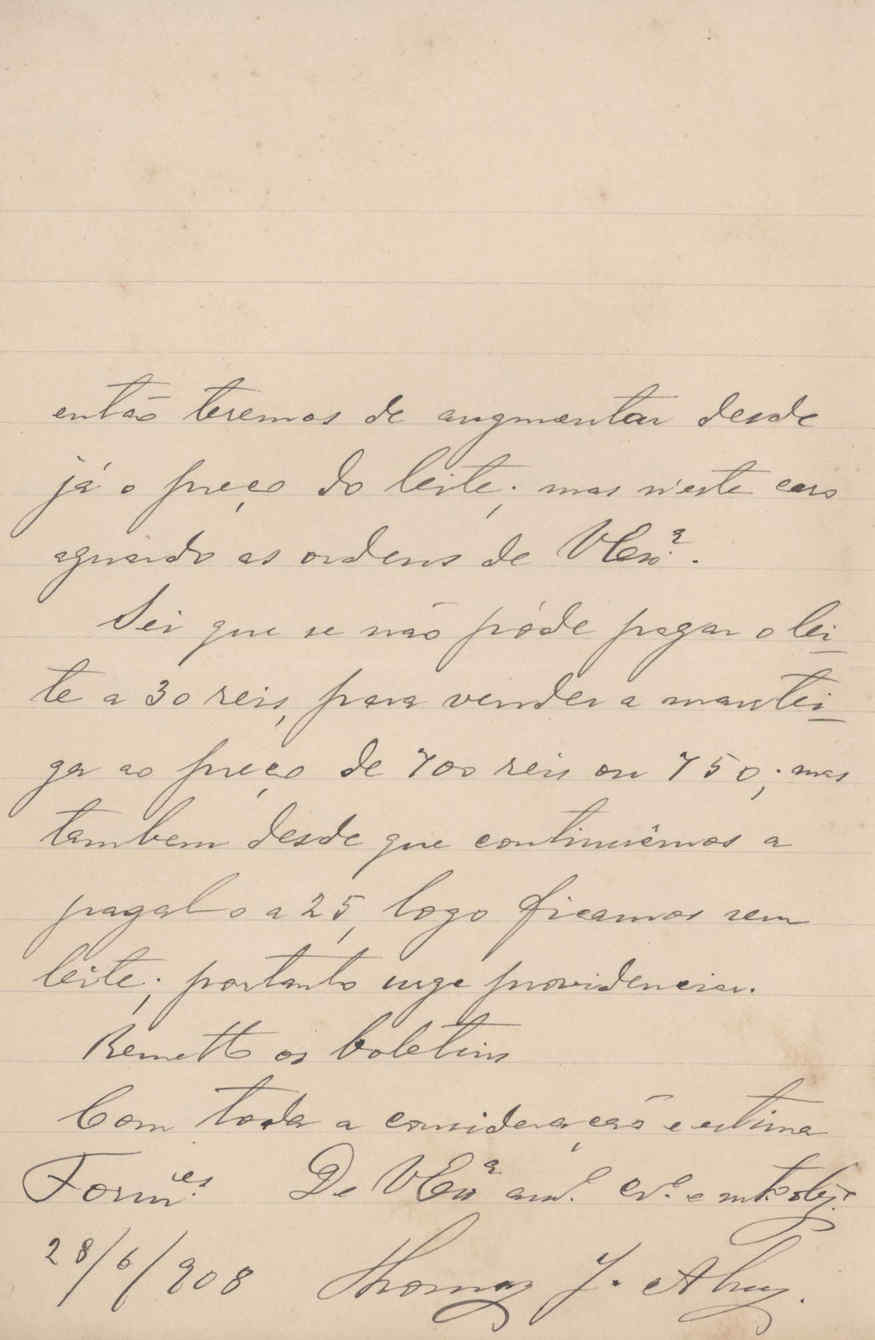 então teremos de augmentar desde
já o preço do leite; mas n'este caso
aguardo as ordens de VExª.
Sei que se não póde pagar o lei-
te a 30 reis, para vender a mantei-
ga ao preço de 700 reis ou 750; mas
tambem desde que continuêmos a
pagal-o a 25, logo ficamos sem
leite; portanto urge providenciar.
Remetto os boletins
Com toda a consideração e estima
De VExª amº. crº. e mtº obgº
28/6/908 Thomaz J.